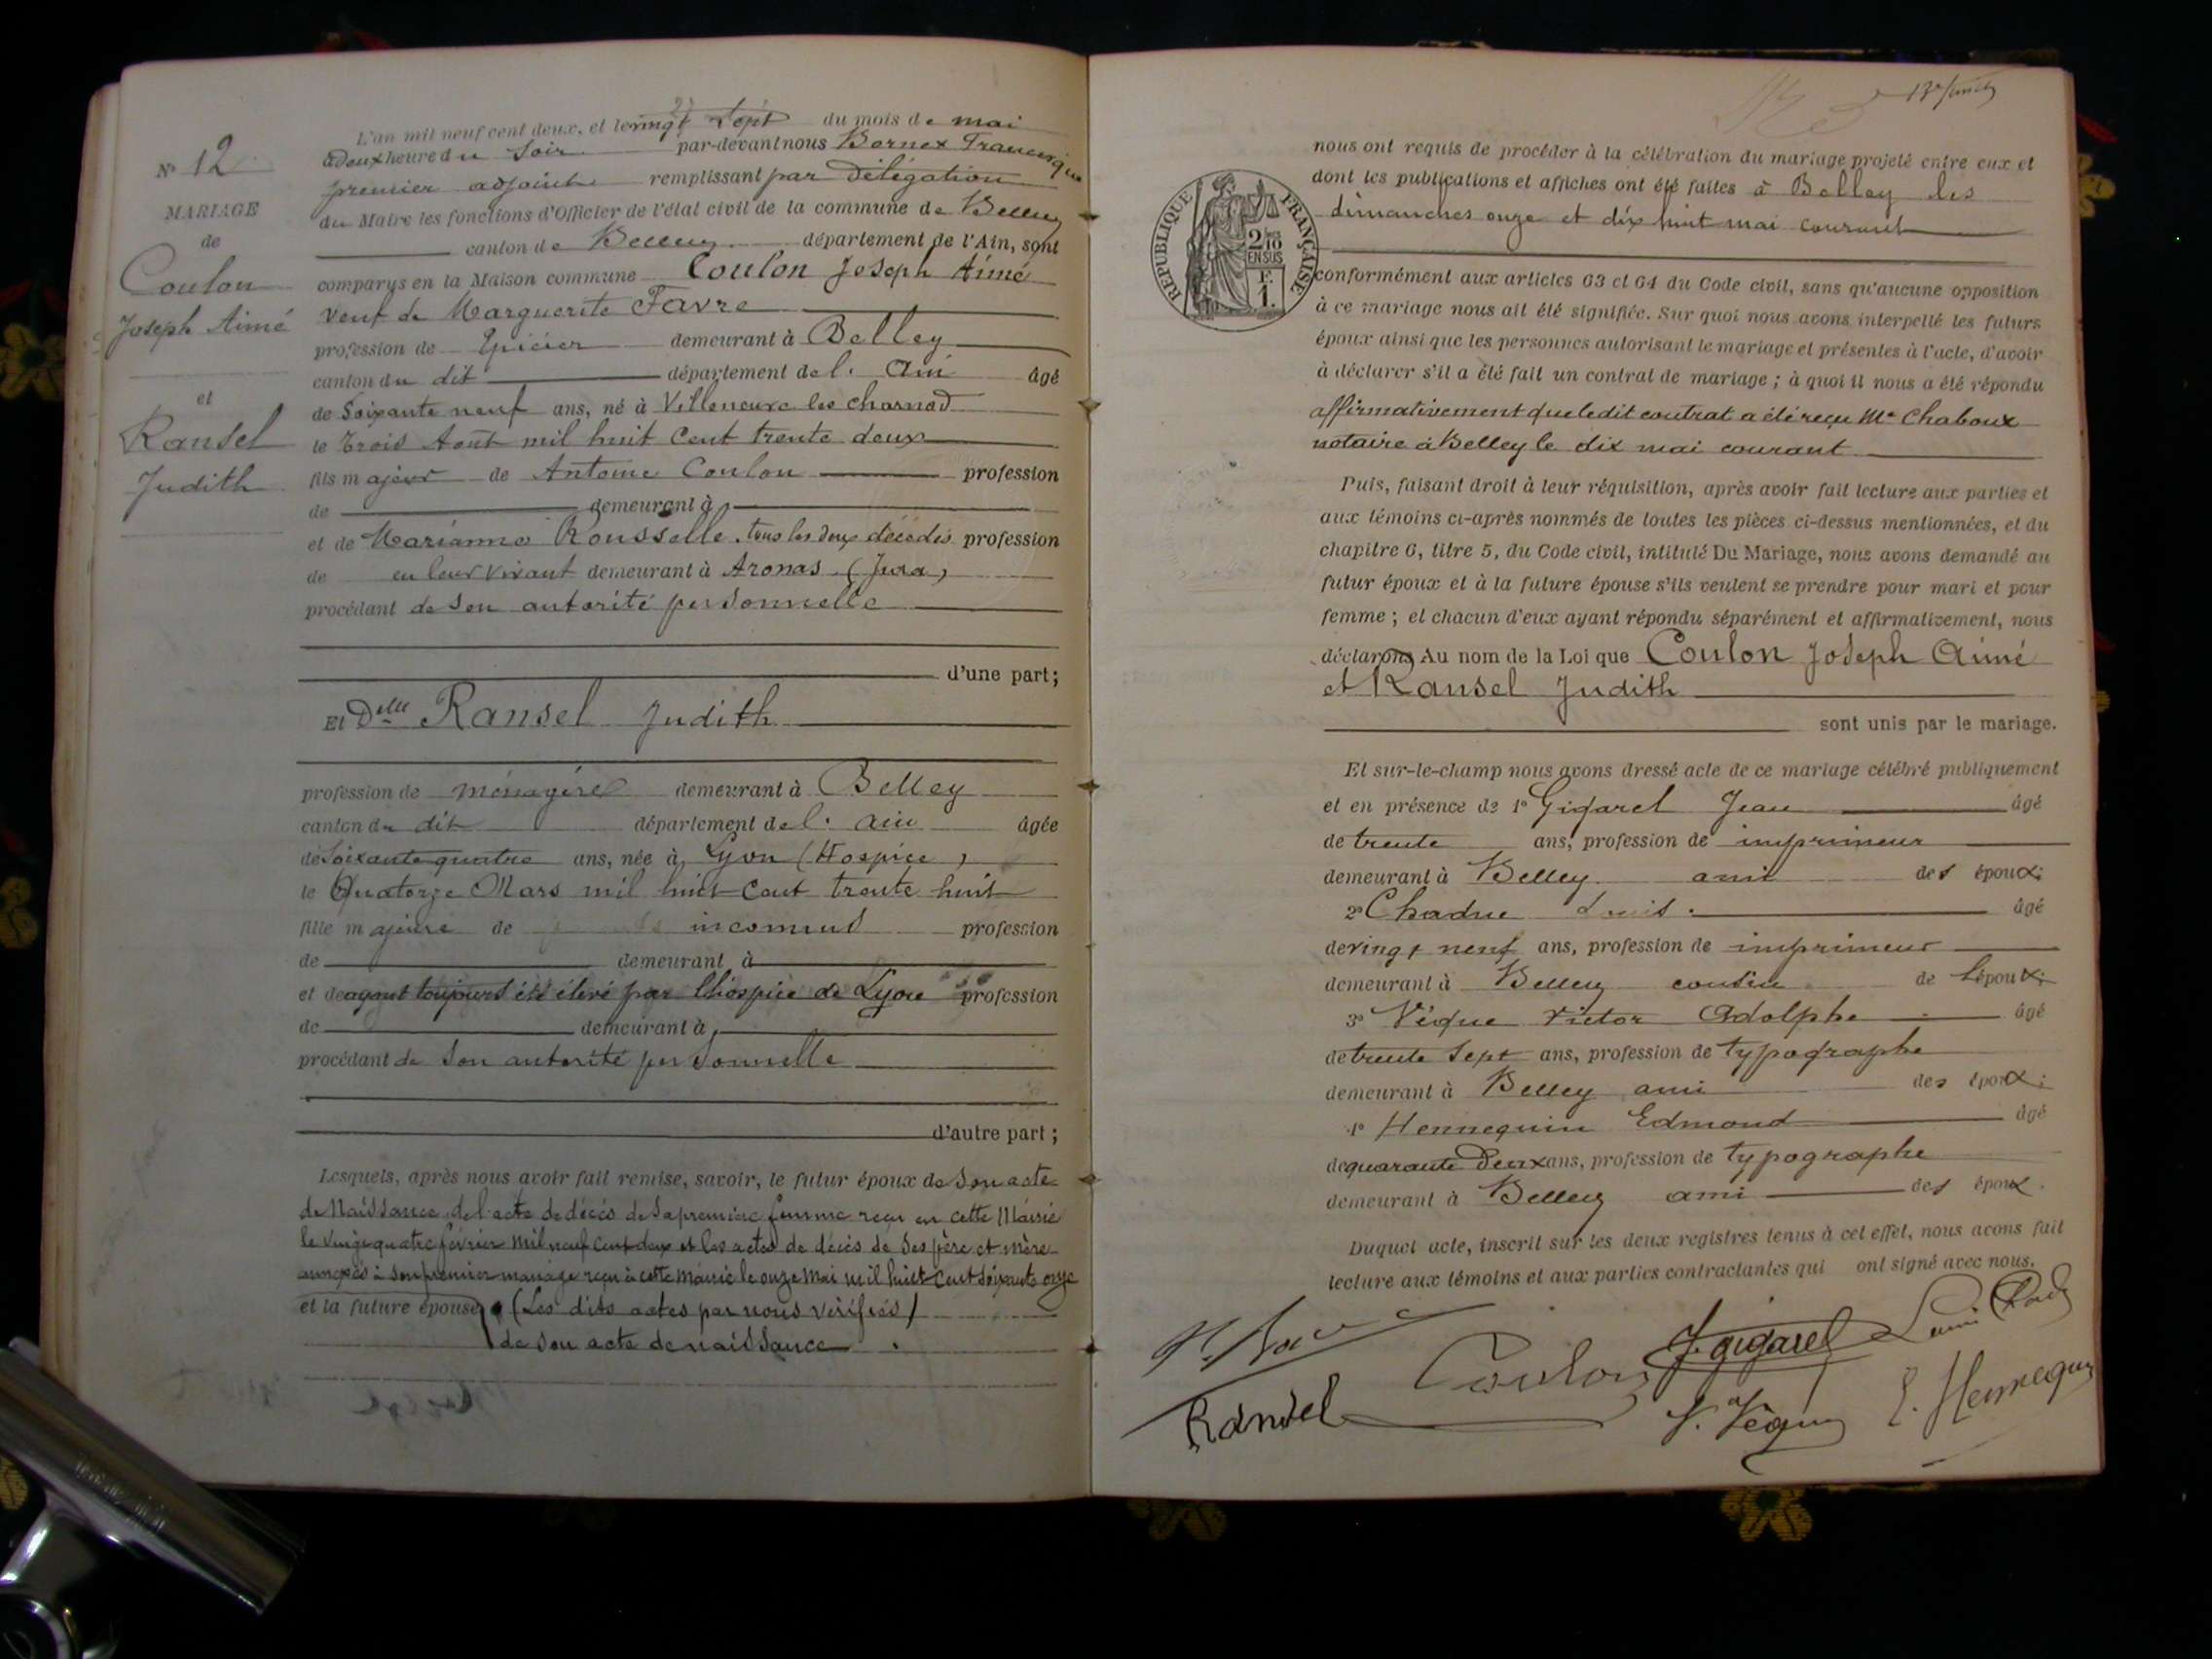 N° 12
MARIAGE
de
Coulon
Joseph Aimé
et
Ransel
Judith
L'an mil neuf cent deux, et le vingt sept du mois de mai
à deux heure du soir par-devant nous Bornex Francisque
premier adjoint remplissant par délégation
du Maire les fonctions d'Officier de l'état civil de la commune de Belley
canton de Belley département de l'Ain, sont
comparus en la Maison commune Coulon Joseph Aimé
veuf de Marguerite Favre
profession de Epicier demeurant à Belley
canton du dit département de l'Ain âgé
de soixante neuf ans, né à Villeneuve les charnod
le trois Août mil huit cent trente deux
fils majeur de Antoine Coulon profession
de demeurant à
et de Marianne Rousselle, tous les deux décédés profession
de en leur vivant demeurant à Aronas (Jura)
procédant de son autorité personnelle
d'une part;
Et Delle Ransel Judith
profession de ménagère demeurant à Belley
canton du dit département de l'Ain âgée
de soixante quatre ans, née à Lyon (Hospice)
le Quatorze Mars mil huit cent trente huit
fille majeure de inconnus profession
de demeurant à
et de ayant toujours été élevé par l'hospice de Lyon profession
de demeurant à
procédant de son autorité personnelle
d'autre part;
Lesquels, après nous avoir fait remise, savoir, le futur époux de son acte
de Naissance, de l'acte de décès de sa première femme reçu en cette Mairie
le vingt quatre février mil neuf cent deux et les actes de décès de ses père et mère
annexés à son premier mariage reçu à cette mairie le onze mai mil huit cent soixante onze
et la future épouse (Les dits actes par nous vérifiés)
de son acte de naissance
nous ont requis de procéder à la célébration du mariage projeté entre eux et
dont les publications et affiches ont été faites à Belley les
dimanches onze et dix huit mai courant
RÉPUBLIQUE FRANÇAISE
2/10
EN SUS
F.
1.
conformément aux articles 63 et 64 du Code civil, sans qu'aucune opposition
à ce mariage nous ait été signifiée. Sur quoi nous avons interpellé les futurs
époux ainsi que les personnes autorisant le mariage et présentes à l'acte, d'avoir
à déclarer s'il a été fait un contrat de mariage; à quoi il nous a été répondu
affirmativement que ledit contrat a été reçu Me Chaboux
notaire à Belley le dix mai courant
Puis, faisant droit à leur réquisition, après avoir fait lecture aux parties et
aux témoins ci-après nommés de toutes les pièces ci-dessus mentionnées, et du
chapitre 6, titre 5, du Code civil, intitulé Du Mariage, nous avons demandé au
futur époux et à la future épouse s'ils veulent se prendre pour mari et pour
femme; et chacun d'eux ayant répondu séparément et affirmativement, nous
déclarons Au nom de la Loi que Coulon Joseph Aimé
et Ransel Judith
sont unis par le mariage.
Et sur-le-champ nous avons dressé acte de ce mariage célébré publiquement
et en présence de 1° Gigarel Jean âgé
de trente ans, profession de imprimeur
demeurant à Belley ami des époux;
2° Chadue Louis âgé
de vingt neuf ans, profession de imprimeur
demeurant à Belley cousin de l'époux;
3° Vèque Victor Adolphe âgé
de trente sept ans, profession de typographe
demeurant à Belley ami des époux;
4° Hennequin Edmond âgé
de quarante deux ans, profession de typographe
demeurant à Belley ami des époux.
Duquel acte, inscrit sur les deux registres tenus à cet effet, nous avons fait
lecture aux témoins et aux parties contractantes qui ont signé avec nous.
Coulon J. Gigarel
Ransel E. Hennequin